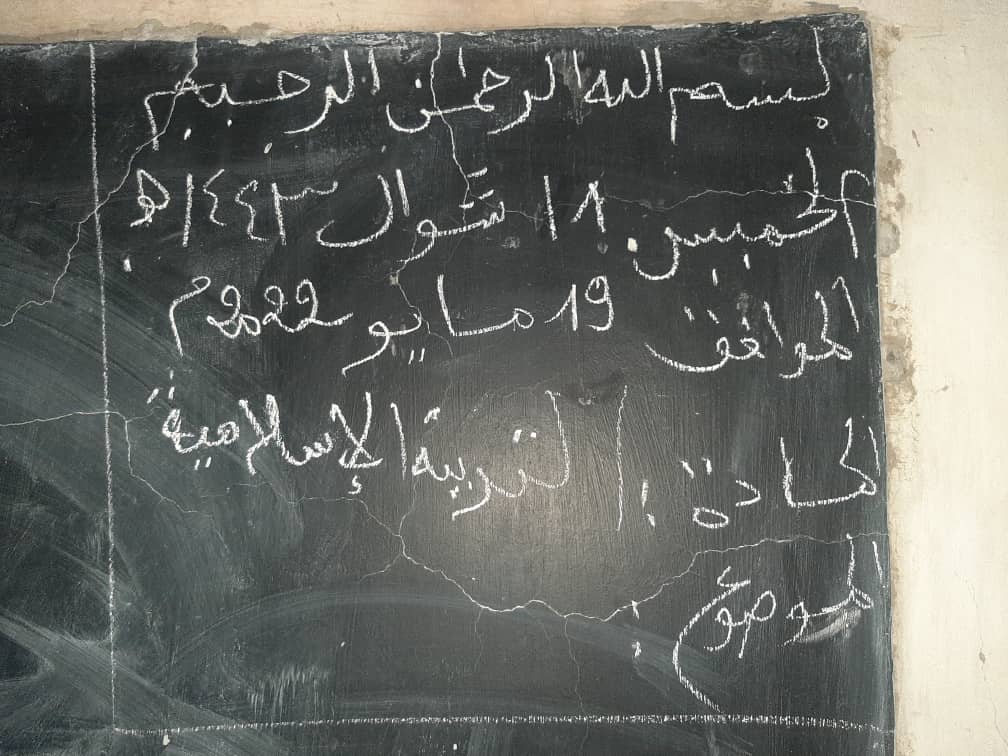 بسم الله الرحمٰن الرحيم
الخميس ١٨ شوال ١٤٤٣هـ
الموافق 19 مايو 2022م
المادة: التربية الإسلامية
الموضوع: